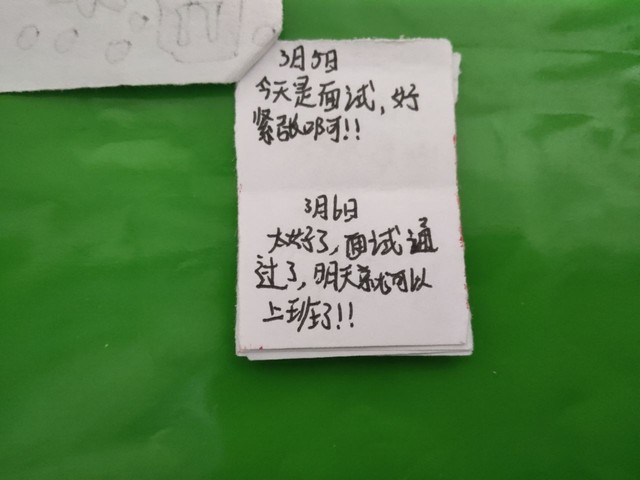 3月5日
今天是面试,好
紧张啊!!
3月6日
太好了,面试通
过了,明天就可以
上班了!!